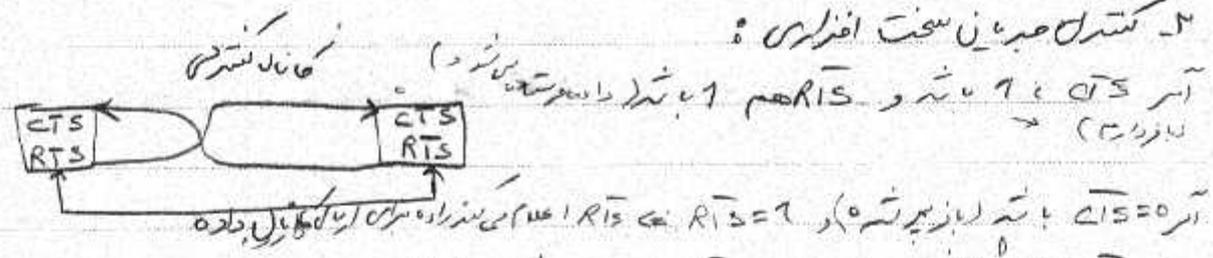 ۲- کنترل جریان سخت افزاری :
کانال کنترلی
اگر CTS ، 1 باشد و RTS هم 1 باشد (داده فرستاده می شود)
CTS
RTS
CTS
RTS
اگر CTS=0 باشد و RTS=1 RTS اعلام می کند داده برای ارسال
کانال داده